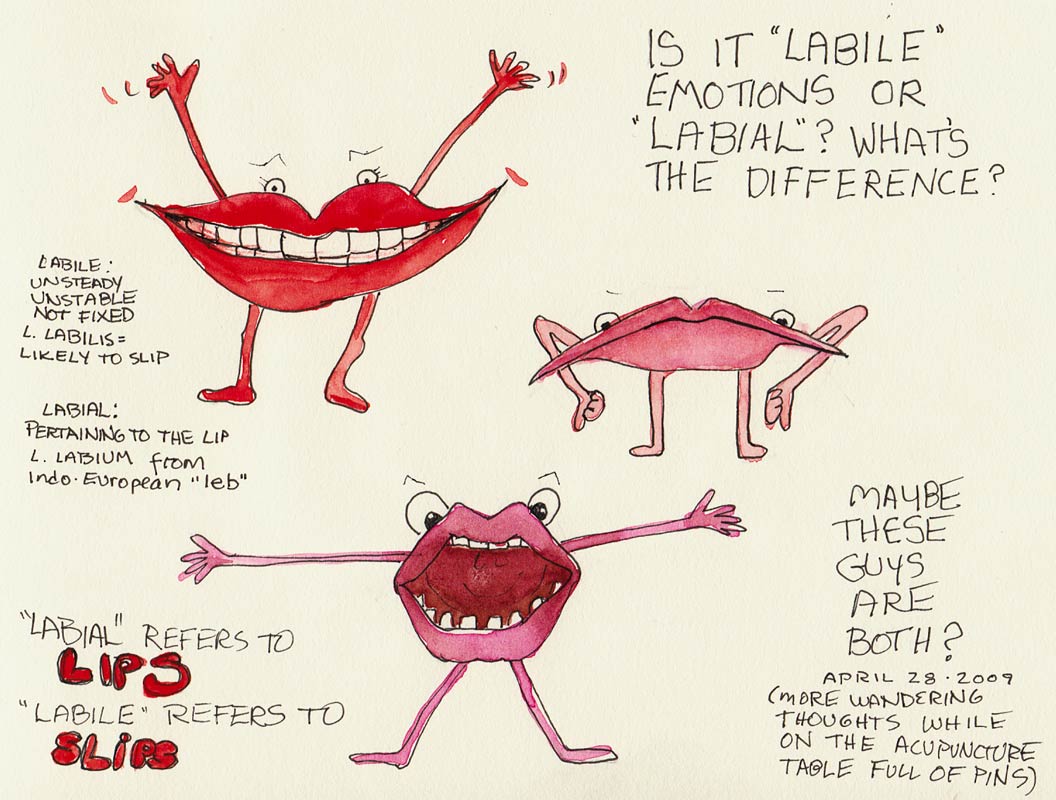 IS IT "LABILE"
EMOTIONS OR
"LABIAL"? WHAT'S
THE DIFFERENCE?
LABILE:
UNSTEADY
UNSTABLE
NOT FIXED
L. LABILIS=
LIKELY TO SLIP
LABIAL:
PERTAINING TO THE LIP
L. LABIUM from
Indo-European "leb"
"LABIAL" REFERS TO
LIPS
"LABILE" REFERS TO
SLIPS
MAYBE
THESE
GUYS
ARE
BOTH?
APRIL 28·2009
(MORE WANDERING
THOUGHTS WHILE
ON THE ACUPUNCTURE
TABLE FULL OF PINS)